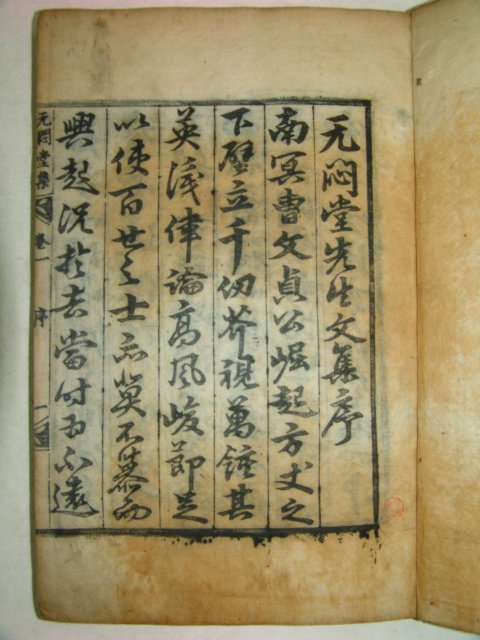 无悶堂先生文集序
南冥曹文貞公崛起方丈之
下壁立千仞芥視萬鍾其
英識偉論高風峻節足
以使百世之士亦莫不慕而
興起況於去當時爲不遠
无悶堂集 卷一 序 一